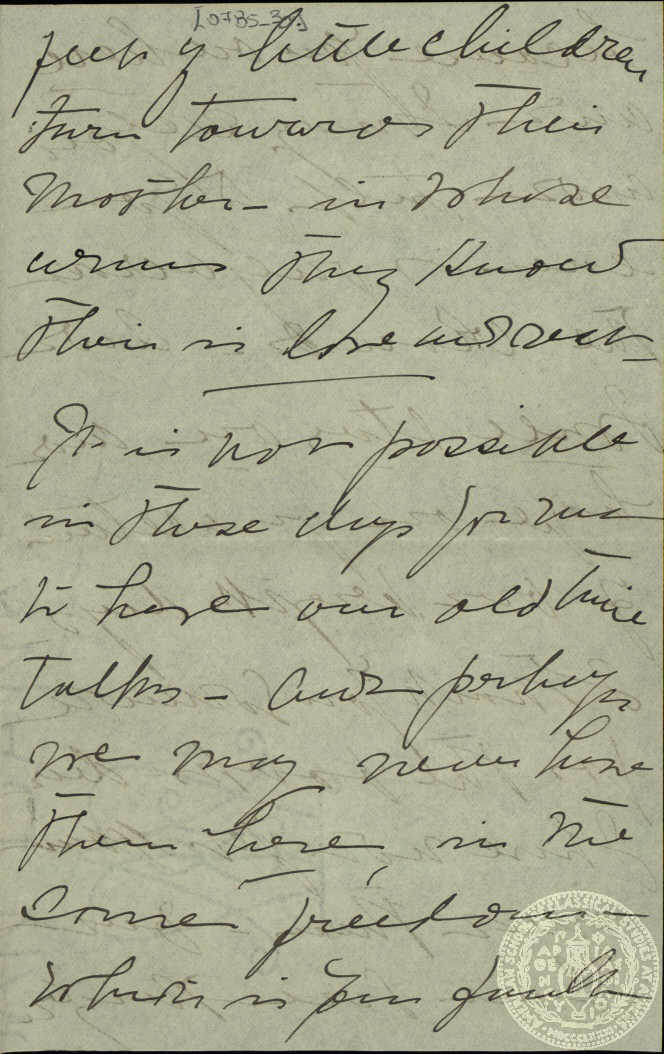 [0785-30]
feet of little children
turn towards their
Mother - in whose
arms they know
their is love and rest -
It is not possible
in these days for me
to have our old time
talks - and perhaps
we may never have
them here, in the
same freedom -
which is your fault